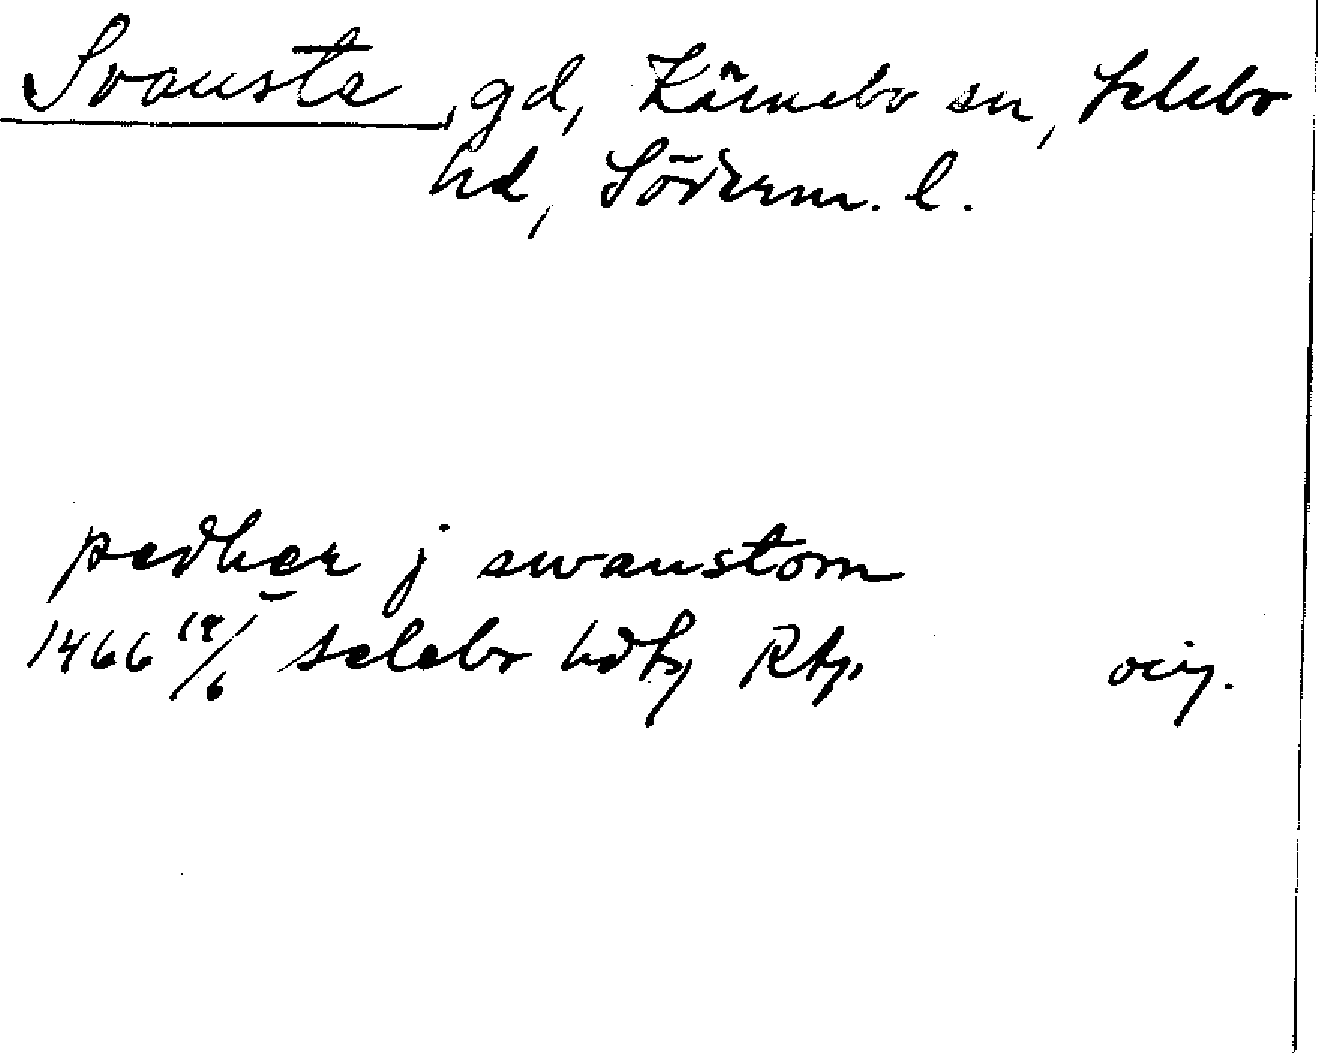 Svansta, gd, Kärnebo sn, Selebo
hd, Söderm. l.
pædher j swanstom
1466 18/6 selebo hdtg Rtp orig.